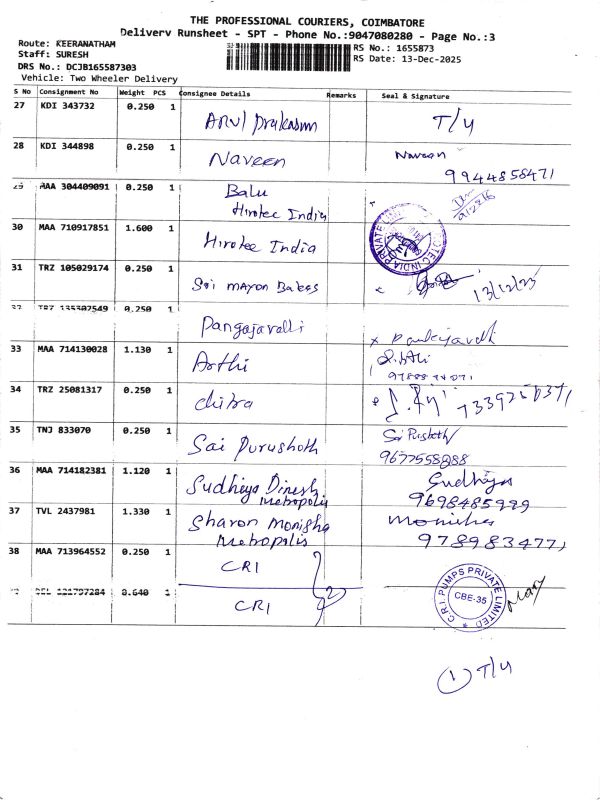 THE PROFESSIONAL COURIERS, COIMBATORE
Delivery Runsheet - SPT - Phone No.:9047080280 - Page No.:3
Route: KEERANATHAM
Staff: SURESH
DRS No.: DCJB165587303
Vehicle: Two Wheeler Delivery
RS No.: 1655873
RS Date: 13-Dec-2025
S No Consignment No Weight PCS Consignee Details Remarks Seal & Signature
27 KDI 343732 0.250 1 Arul prakasam T/4
28 KDI 344898 0.250 1 Naveen Naveen
9944858471
29 AAA 304409091 0.250 1 Balu
Hirotec India
30 MAA 710917851 1.600 1 Hirotec India
31 TRZ 105029174 0.250 1 Sri mayon Bakes 13/12/25
0.250 1
Pangajavalli
33 MAA 714130028 1.130 1 Arthi
34 TRZ 25081317 0.250 1 chitra
35 TNJ 833070 0.250 1 Sai Purushoth
36 MAA 714182381 1.120 1 Sudhiya Dinesh
Metropolis
Sudhiya
9698485999
37 TVL 2437981 1.330 1 Sharon Monisha
Metropolis
Monisha
38 MAA 713964552 0.250 1 CRI
0.640 1 CRI
C.R.I. PUMPS PRIVATE LIMITED
CBE-35
1 T/4